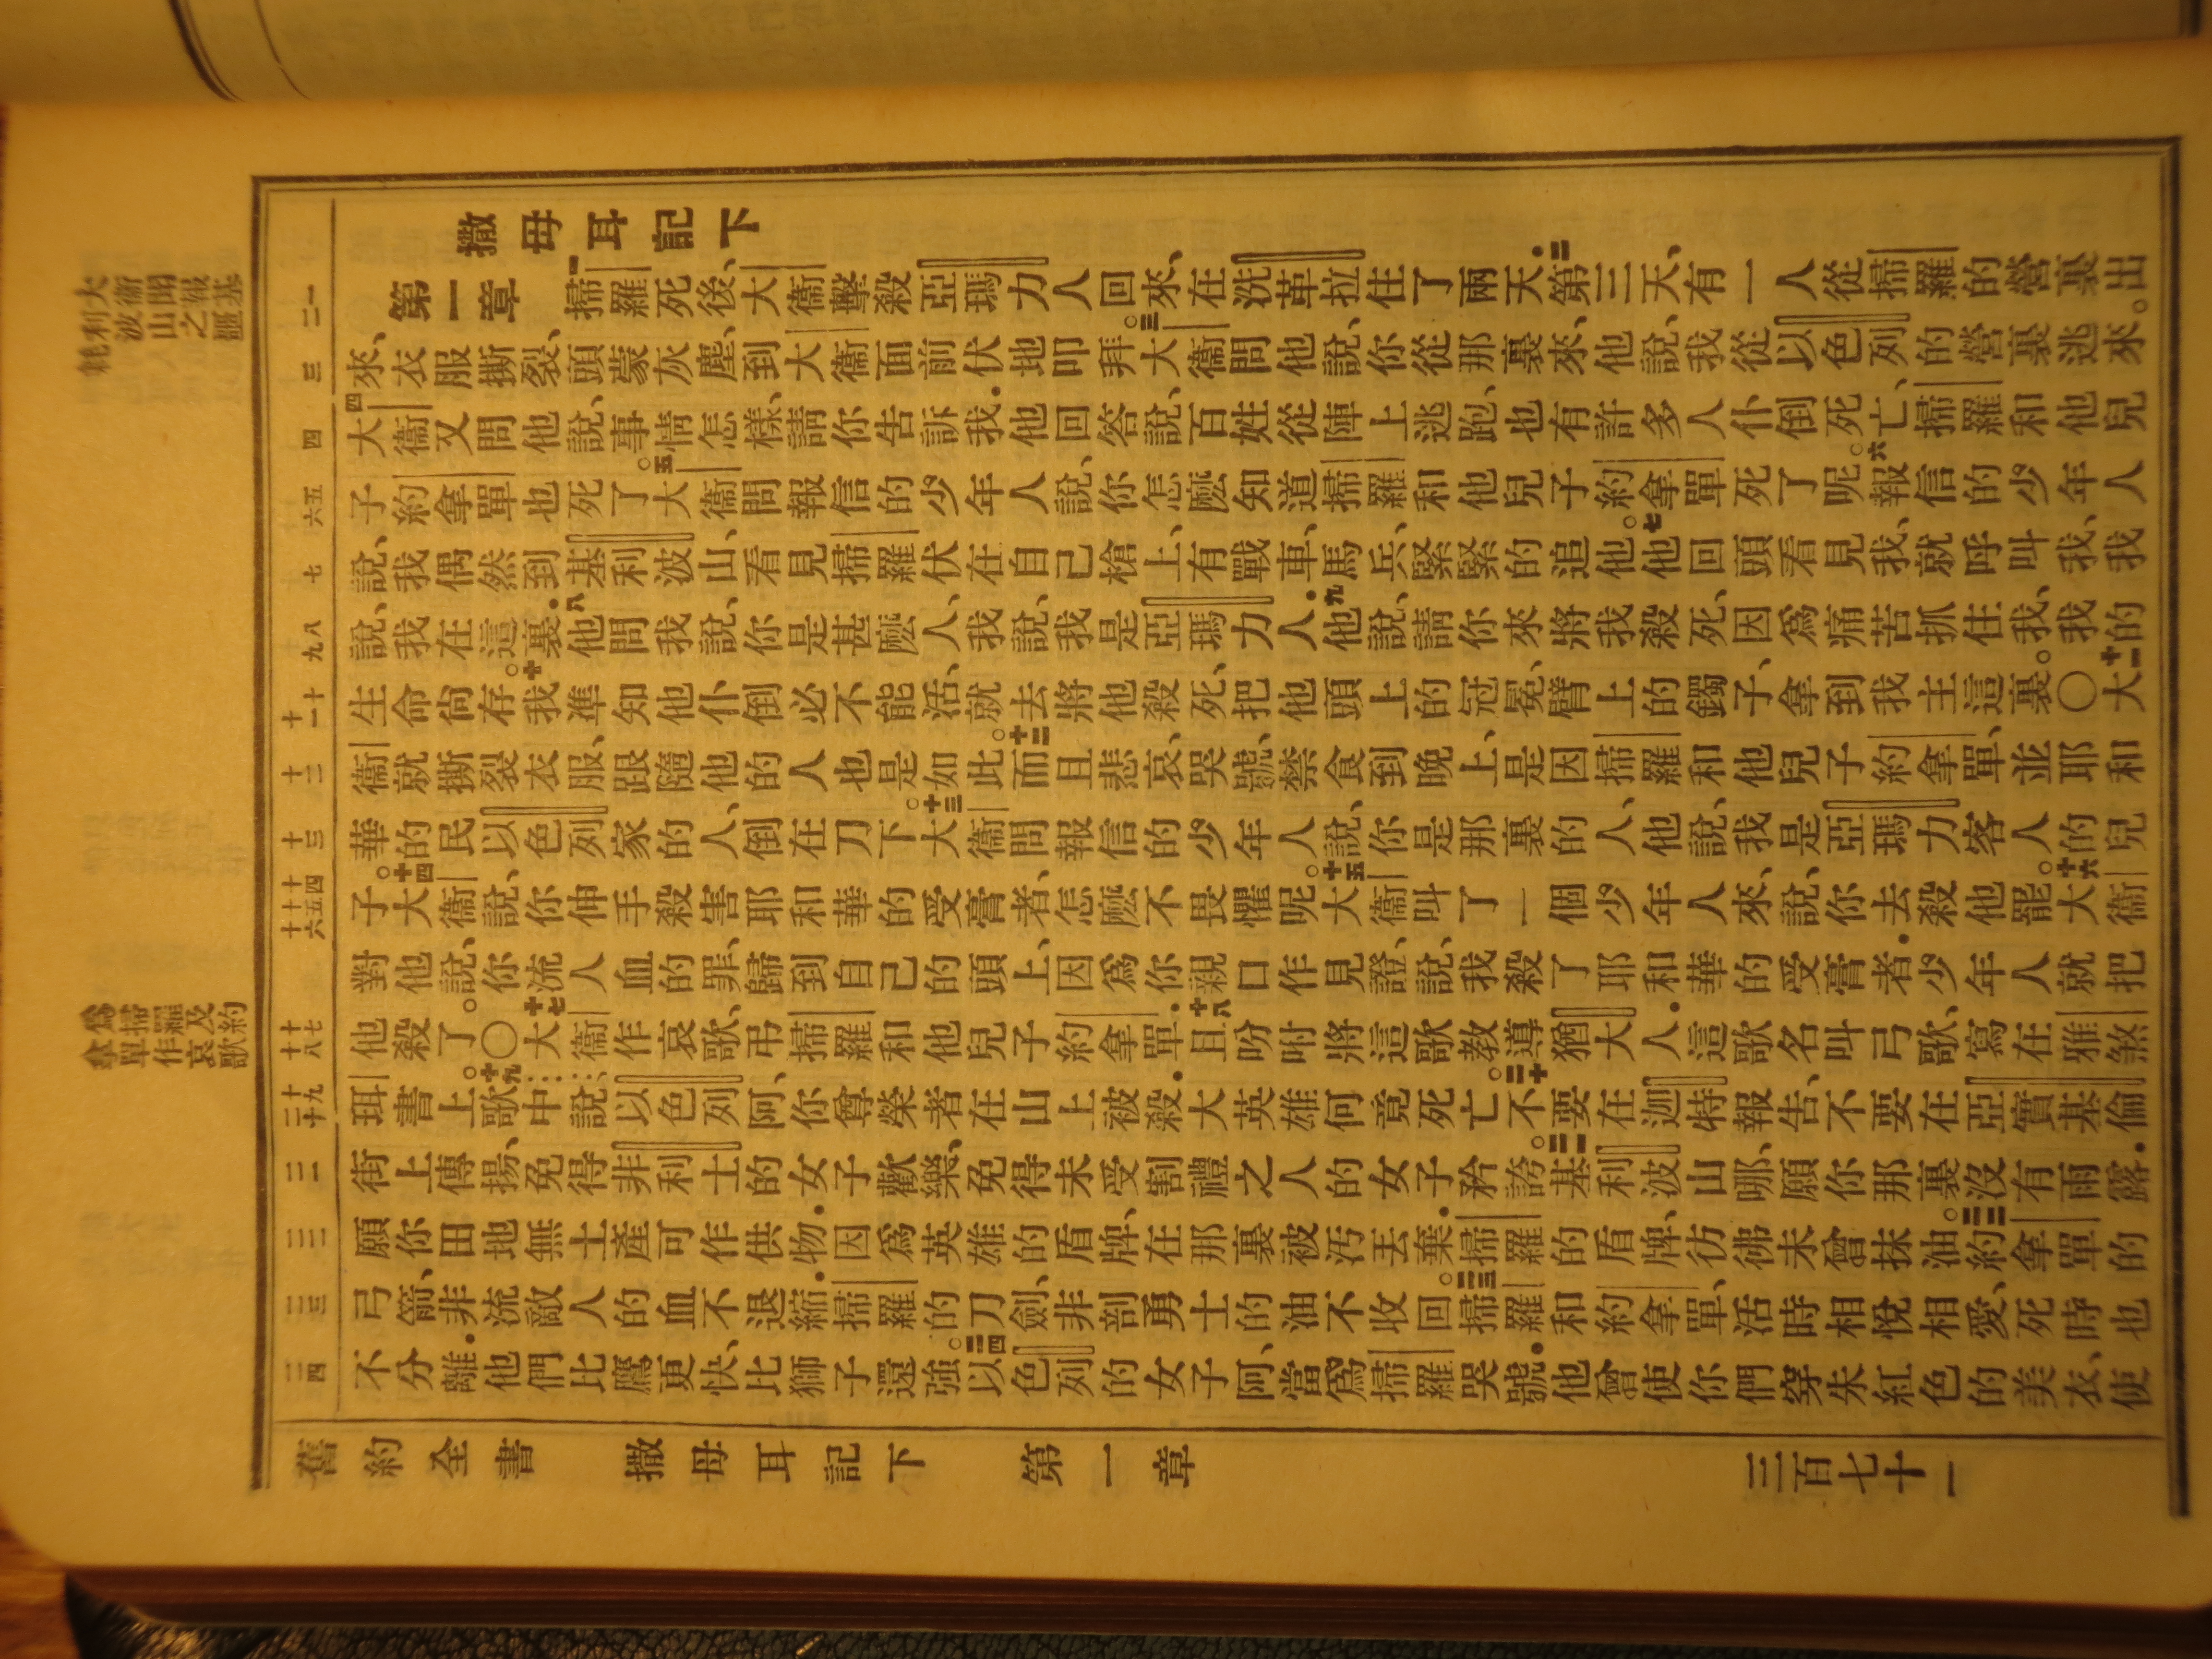 撒母耳記下
第一章 一掃羅死後、大衞擊殺亞瑪力人回來、在洗革拉住了兩天．二第三天、有一人從掃羅的營裏出
來、衣服撕裂、頭蒙灰塵、到大衞面前伏地叩拜。三大衞問他說、你從那裏來、他說、我從以色列的營裏逃來。
四大衞又問他說、事情怎樣、請你告訴我．他回答說、百姓從陣上逃跑、也有許多人仆倒死亡、掃羅和他兒
子約拿單也死了。五大衞問報信的少年人說、你怎麽知道掃羅和他兒子約拿單死了呢。六報信的少年人
說、我偶然到基利波山、看見掃羅伏在自己槍上、有戰車、馬兵、緊緊的追他。七他回頭看見我、就呼叫我、我
說、我在這裏．八他問我說、你是甚麽人、我說、我是亞瑪力人．九他說、請你來將我殺死、因爲痛苦抓住我、我的
生命尙存。十我準知他仆倒必不能活、就去將他殺死、把他頭上的冠冕、臂上的鐲子、拿到我主這裏。〇十一大
衞就撕裂衣服、跟隨他的人也是如此。十二而且悲哀、哭號、禁食到晚上、是因掃羅和他兒子約拿單、並耶和
華的民以色列家的人、倒在刀下。十三大衞問報信的少年人說、你是那裏的人、他說、我是亞瑪力客人的兒
子。十四大衞說、你伸手殺害耶和華的受膏者、怎麽不畏懼呢。十五大衞叫了一個少年人來、說、你去殺他罷。十六大衞
對他說、你流人血的罪、歸到自己的頭上、因爲你親口作見證、說、我殺了耶和華的受膏者．少年人就把
他殺了。〇十七大衞作哀歌、弔掃羅和他兒子約拿單．十八且吩咐將這歌教導猶大人．這歌名叫弓歌、寫在雅煞
珥書上。十九歌中說、以色列阿、你尊榮者在山上被殺．大英雄何竟死亡。二十不要在迦特報告、不要在亞實基倫
街上傳揚、免得非利士的女子歡樂、免得未受割禮之人的女子矜誇。二一基利波山哪、願你那裏沒有雨露．
願你田地無土產可作供物．因爲英雄的盾牌、在那裏被汚丟棄．掃羅的盾牌、彷彿未曾抹油。二二約拿單的
弓箭、非流敵人的血不退縮．掃羅的刀劍、非剖勇士的油不收回。二三掃羅和約拿單、活時相悅相愛、死時也
不分離．他們比鷹更快、比獅子還強。二四以色列的女子阿、當爲掃羅哭號．他曾使你們穿朱紅色的美衣、使
大衞聞報基
利波山之噩
耗
爲掃羅及約
拿單作哀歌
一二
三
四
五六
七
八九
十十一
十二
十三
十四十五十六
十七十八
十九二十
二一
二二
二三
二四
舊約全書 撒母耳記下 第一章 三百七十一